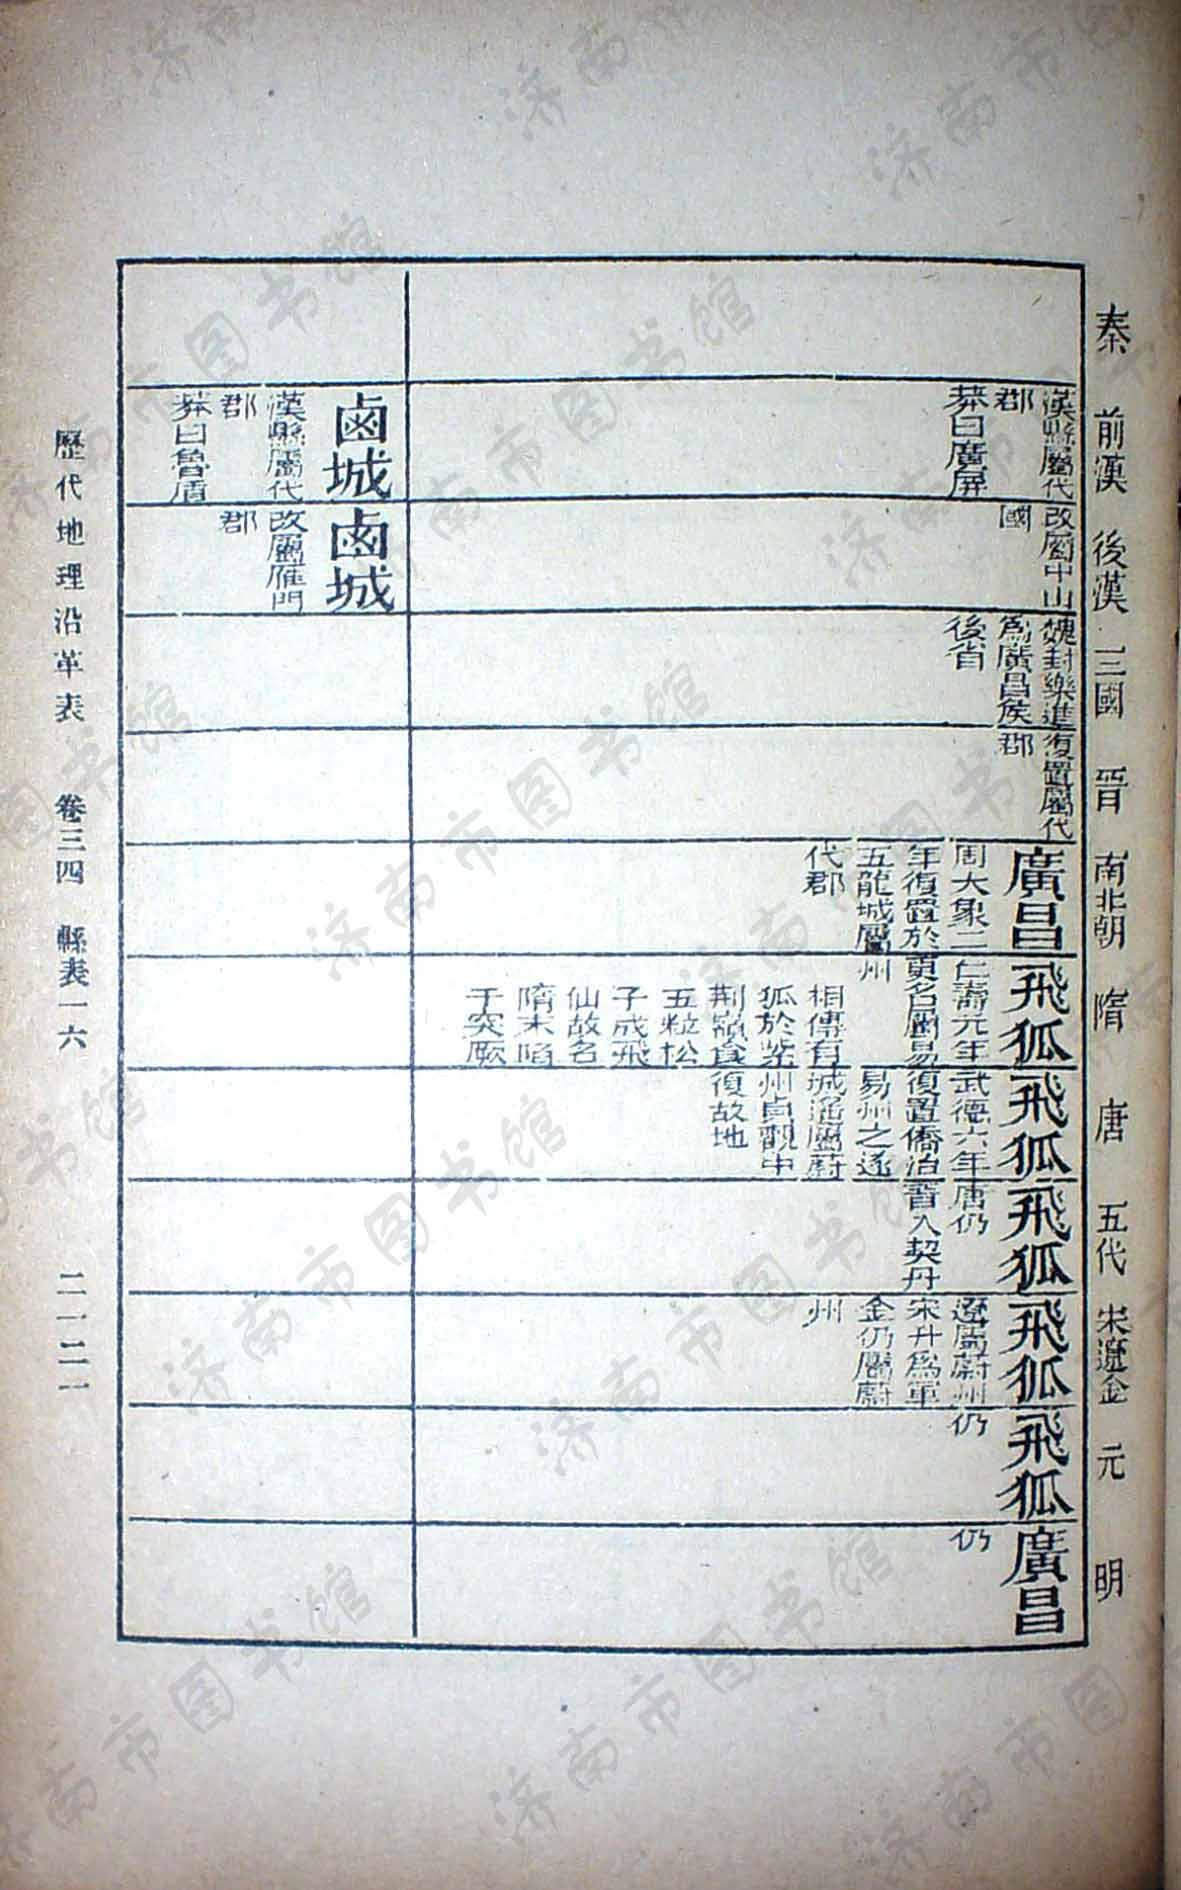 秦
前漢
後漢
三國
晉
南北朝
隋
唐
五代
宋遼金
元
明
漢縣屬代
郡
莽曰廣屏
改屬中山
國
魏封樂進
爲廣昌侯
後省
復置屬代
郡
廣昌
周大象二
年復置於
五龍城屬
代郡
飛狐
仁壽元年
更名屬易
州
相傳有
狐於紫
荆嶺食
五粒松
子成飛
仙故名
隋末陷
于突厥
飛狐
武德六年
復置僑治
易州之遂
城遙屬蔚
州貞觀中
復故地
飛狐
唐仍
晉入契丹
飛狐
遼屬蔚州
宋升爲軍
金仍屬蔚
州
飛狐
仍
廣昌
仍
鹵城
漢縣屬代
郡
莽曰魯盾
鹵城
改屬雁門
郡
歷代地理沿革表 卷三四 縣表一六 二一二一
济南市图书馆